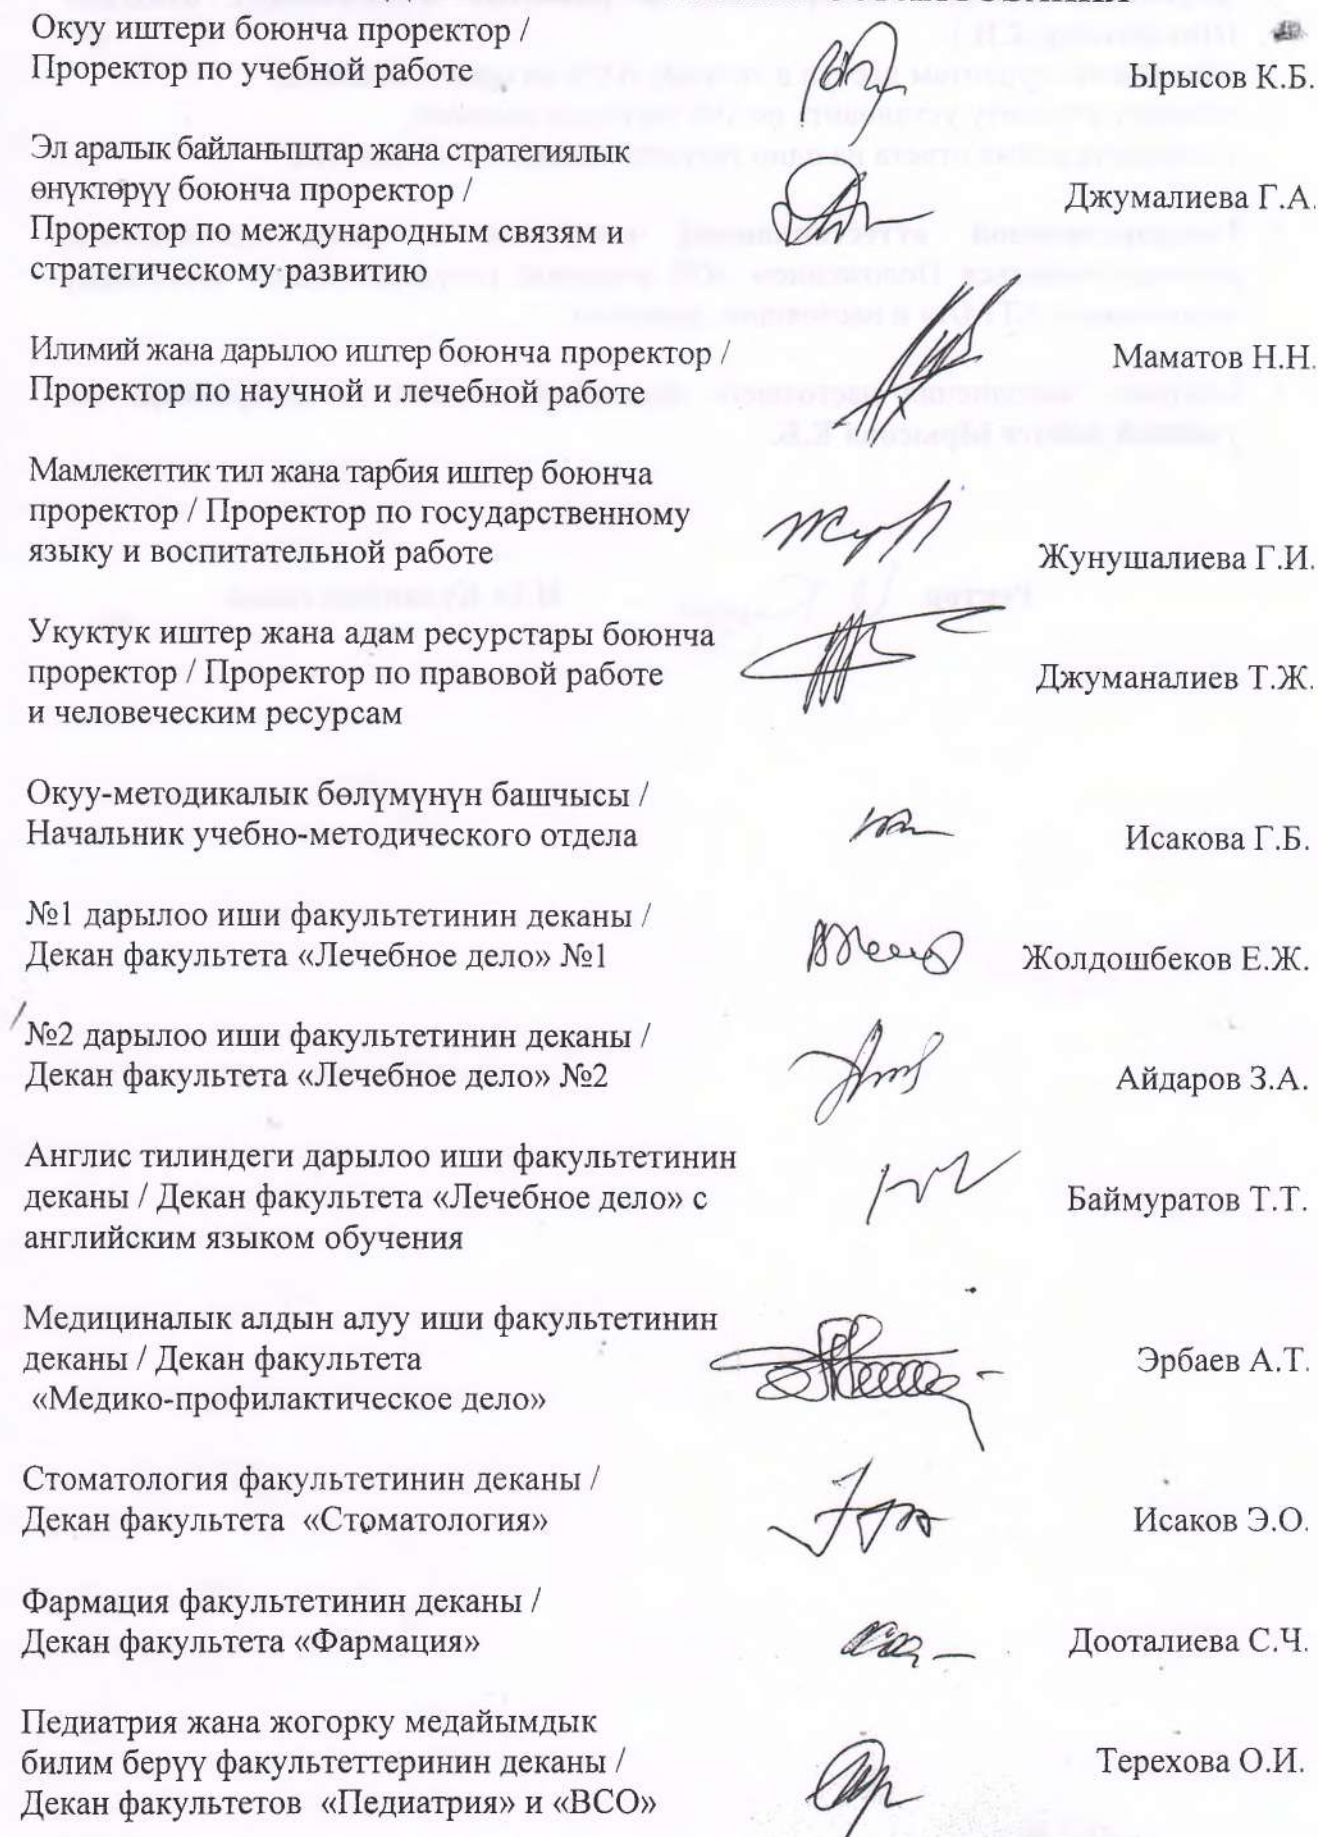 Окуу иштери боюнча проректор /
Проректор по учебной работе
Ырысов К.Б.
Эл аралык байланыштар жана стратегиялык
өнүктөрүү боюнча проректор /
Джумалиева Г.А.
Проректор по международным связям и
стратегическому развитию
Илимий жана дарылоо иштер боюнча проректор /
Маматов Н.Н.
Проректор по научной и лечебной работе
Мамлекеттик тил жана тарбия иштер боюнча
проректор / Проректор по государственному
языку и воспитательной работе
Жунушалиева Г.И.
Укуктук иштер жана адам ресурстары боюнча
проректор / Проректор по правовой работе
Джуманалиев Т.Ж.
и человеческим ресурсам
Окуу-методикалык бөлүмүнүн башчысы /
Начальник учебно-методического отдела
Исакова Г.Б.
№1 дарылоо иши факультетинин деканы /
Декан факультета «Лечебное дело» №1
Жолдошбеков Е.Ж.
№2 дарылоо иши факультетинин деканы /
Декан факультета «Лечебное дело» №2
Айдаров З.А.
Англис тилиндеги дарылоо иши факультетинин
деканы / Декан факультета «Лечебное дело» с
Баймуратов Т.Т.
английским языком обучения
Медициналык алдын алуу иши факультетинин
деканы / Декан факультета
Эрбаев А.Т.
«Медико-профилактическое дело»
Стоматология факультетинин деканы /
Декан факультета «Стоматология»
Исаков Э.О.
Фармация факультетинин деканы /
Декан факультета «Фармация»
Дооталиева С.Ч.
Педиатрия жана жогорку медайымдык
билим берүү факультеттеринин деканы /
Терехова О.И.
Декан факультетов «Педиатрия» и «ВСО»